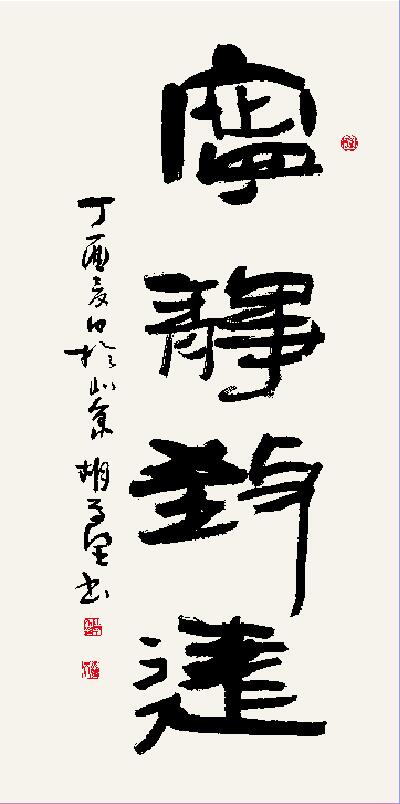 寧靜致遠
丁酉夏日於北京 胡 書